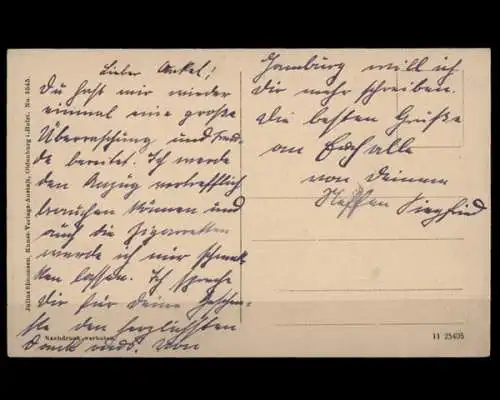 Lieber Onkel!
Du hast mir wieder
einmal eine große
Überraschung und Freu-
de bereitet. Ich werde
den Anzug vortrefflich
brauchen können und
auch die Zigaretten
werde ich mir schmek-
ken lassen. Ich spreche
Dir für deine Geschen-
ke den herzlichsten
Dank aus. Von
Hamburg will ich
Dir mehr schreiben.
Die besten Grüße
an Euch alle
von Deinem
Neffen Siegfried
Nachdruck verboten.
11 25405
Julius Simonsen, Kunst-Verlags-Anstalt, Oldenburg i. Holst. No.